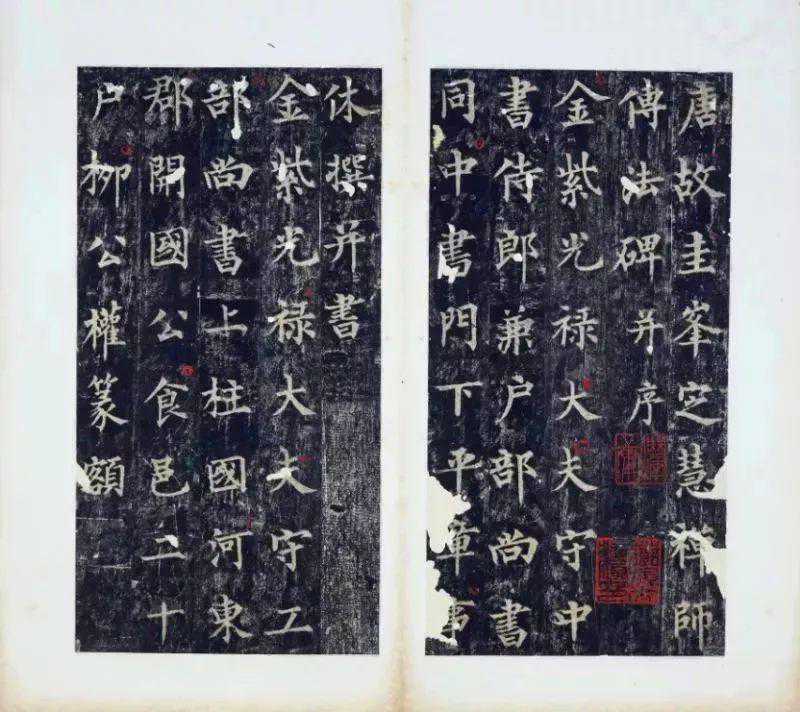 唐故圭峯定慧禪師
傳法碑并序
金紫光禄大夫守中
書侍郎兼户部尚書
同中書門下平章事
休撰并書
金紫光禄大夫守工
部尚書上柱國河東
郡開國公食邑二十
户柳公權篆額